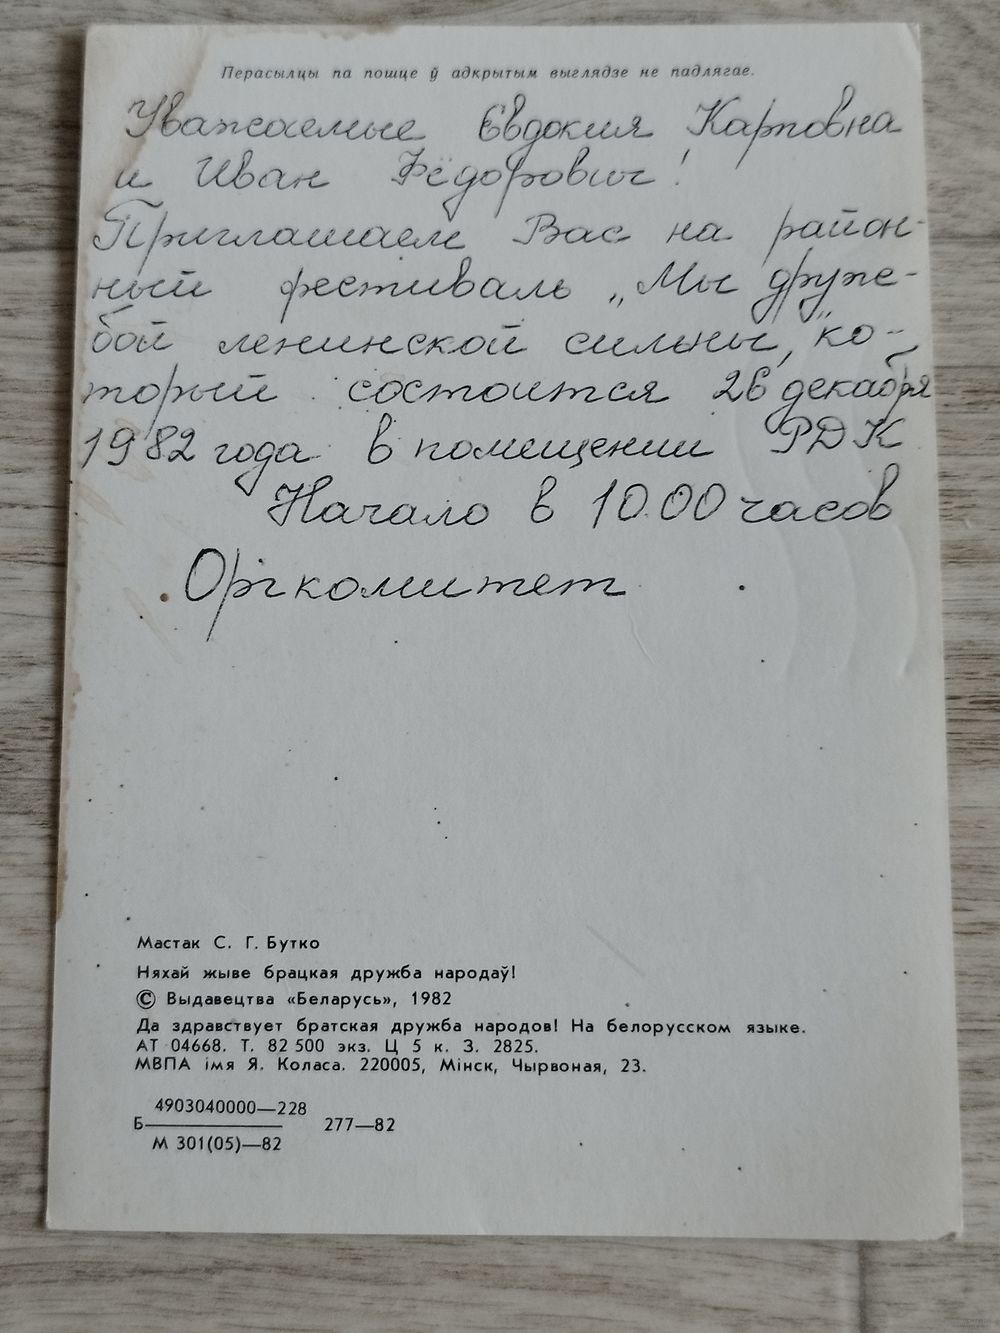 Перасылцы па пошце ў адкрытым выглядзе не падлягае.
Уважаемые Евдокия Карповна
и Иван Фёдорович!
Приглашаем Вас на район-
ный фестиваль „Мы друж-
бой ленинской сильны", ко-
торый состоится 26 декабря
1982 года в помещении РДК
Начало в 10.00 часов
Оргкомитет
Мастак С. Г. Бутко
Няхай жыве брацкая дружба народаў!
© Выдавецтва «Беларусь», 1982
Да здравствует братская дружба народов! На белорусском языке.
АТ 04668. Т. 82 500 экз. Ц 5 к. З. 2825.
МВПА імя Я. Коласа. 220005, Мінск, Чырвоная, 23.
4903040000—228
Б——— 277—82
М 301(05)—82